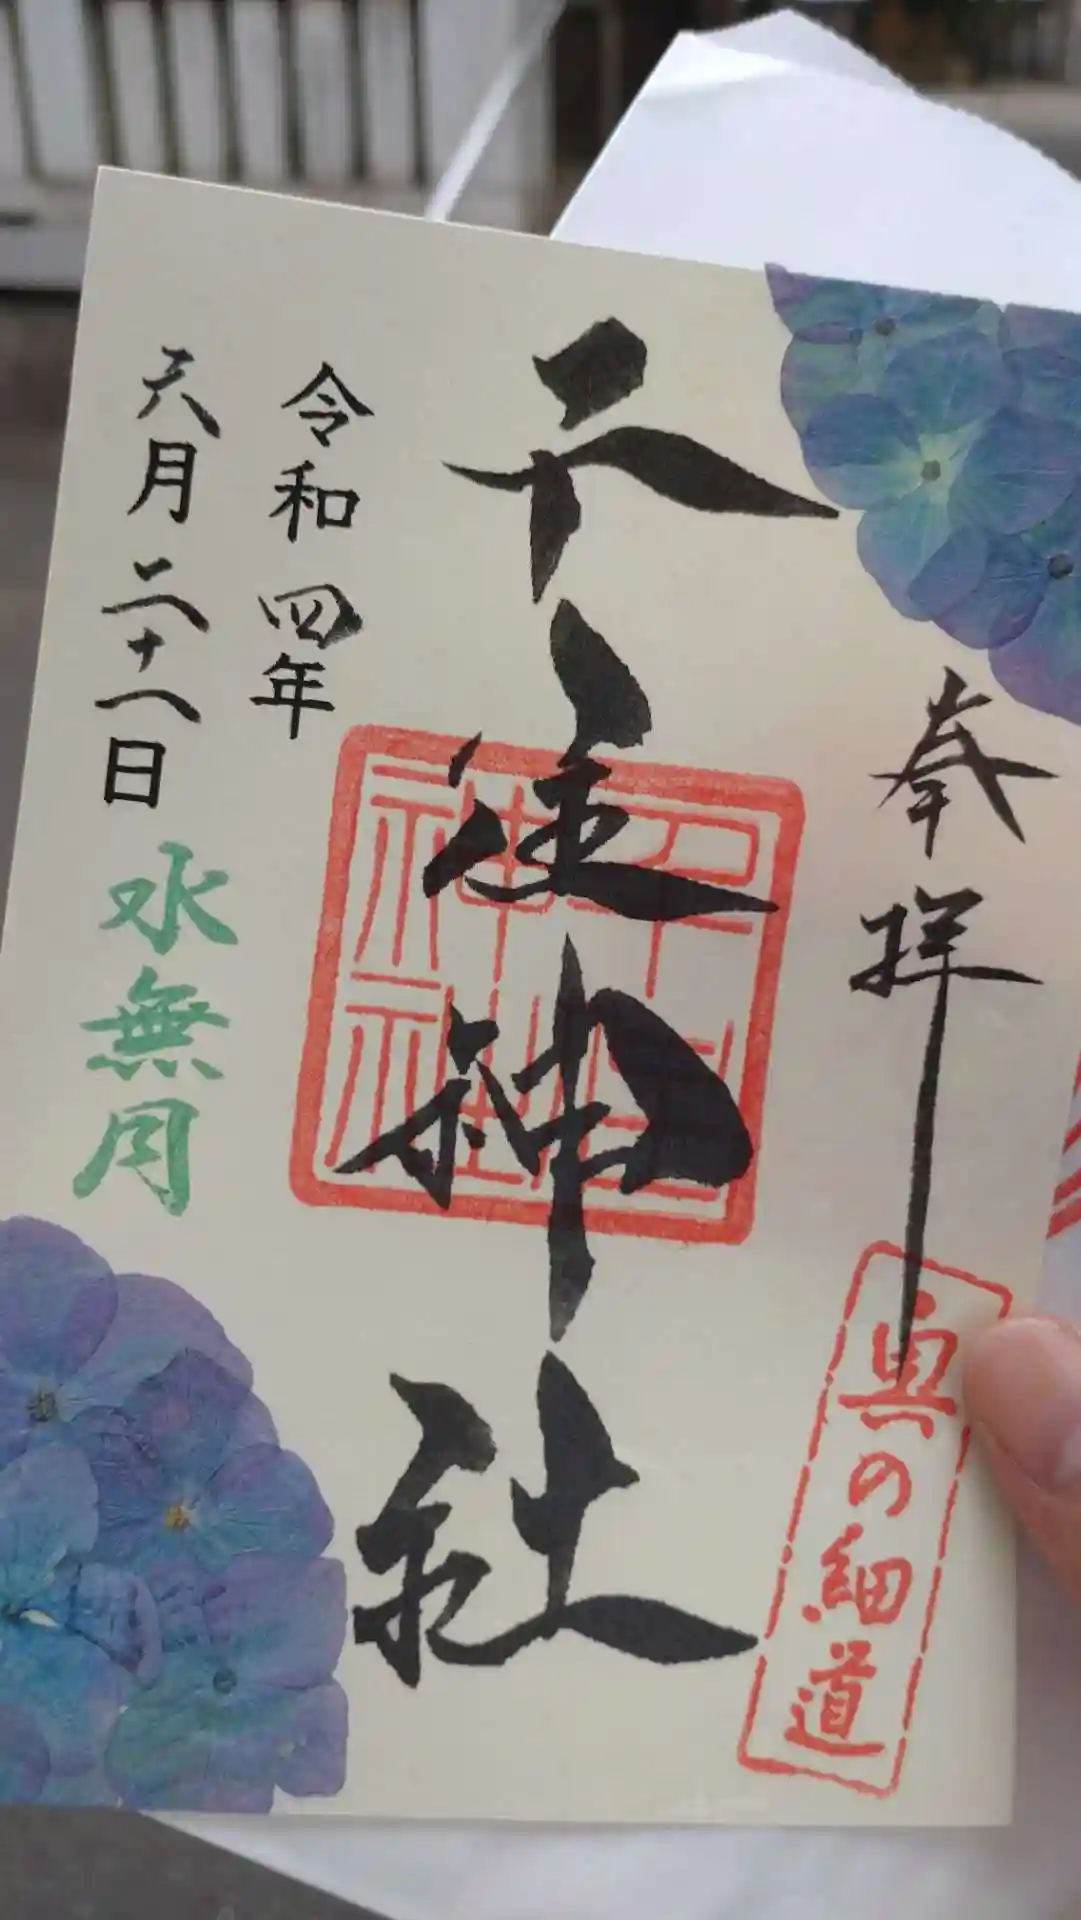 奉拝
奥の細道
千住神社
千住
神社
令和四年
六月二十八日
水無月